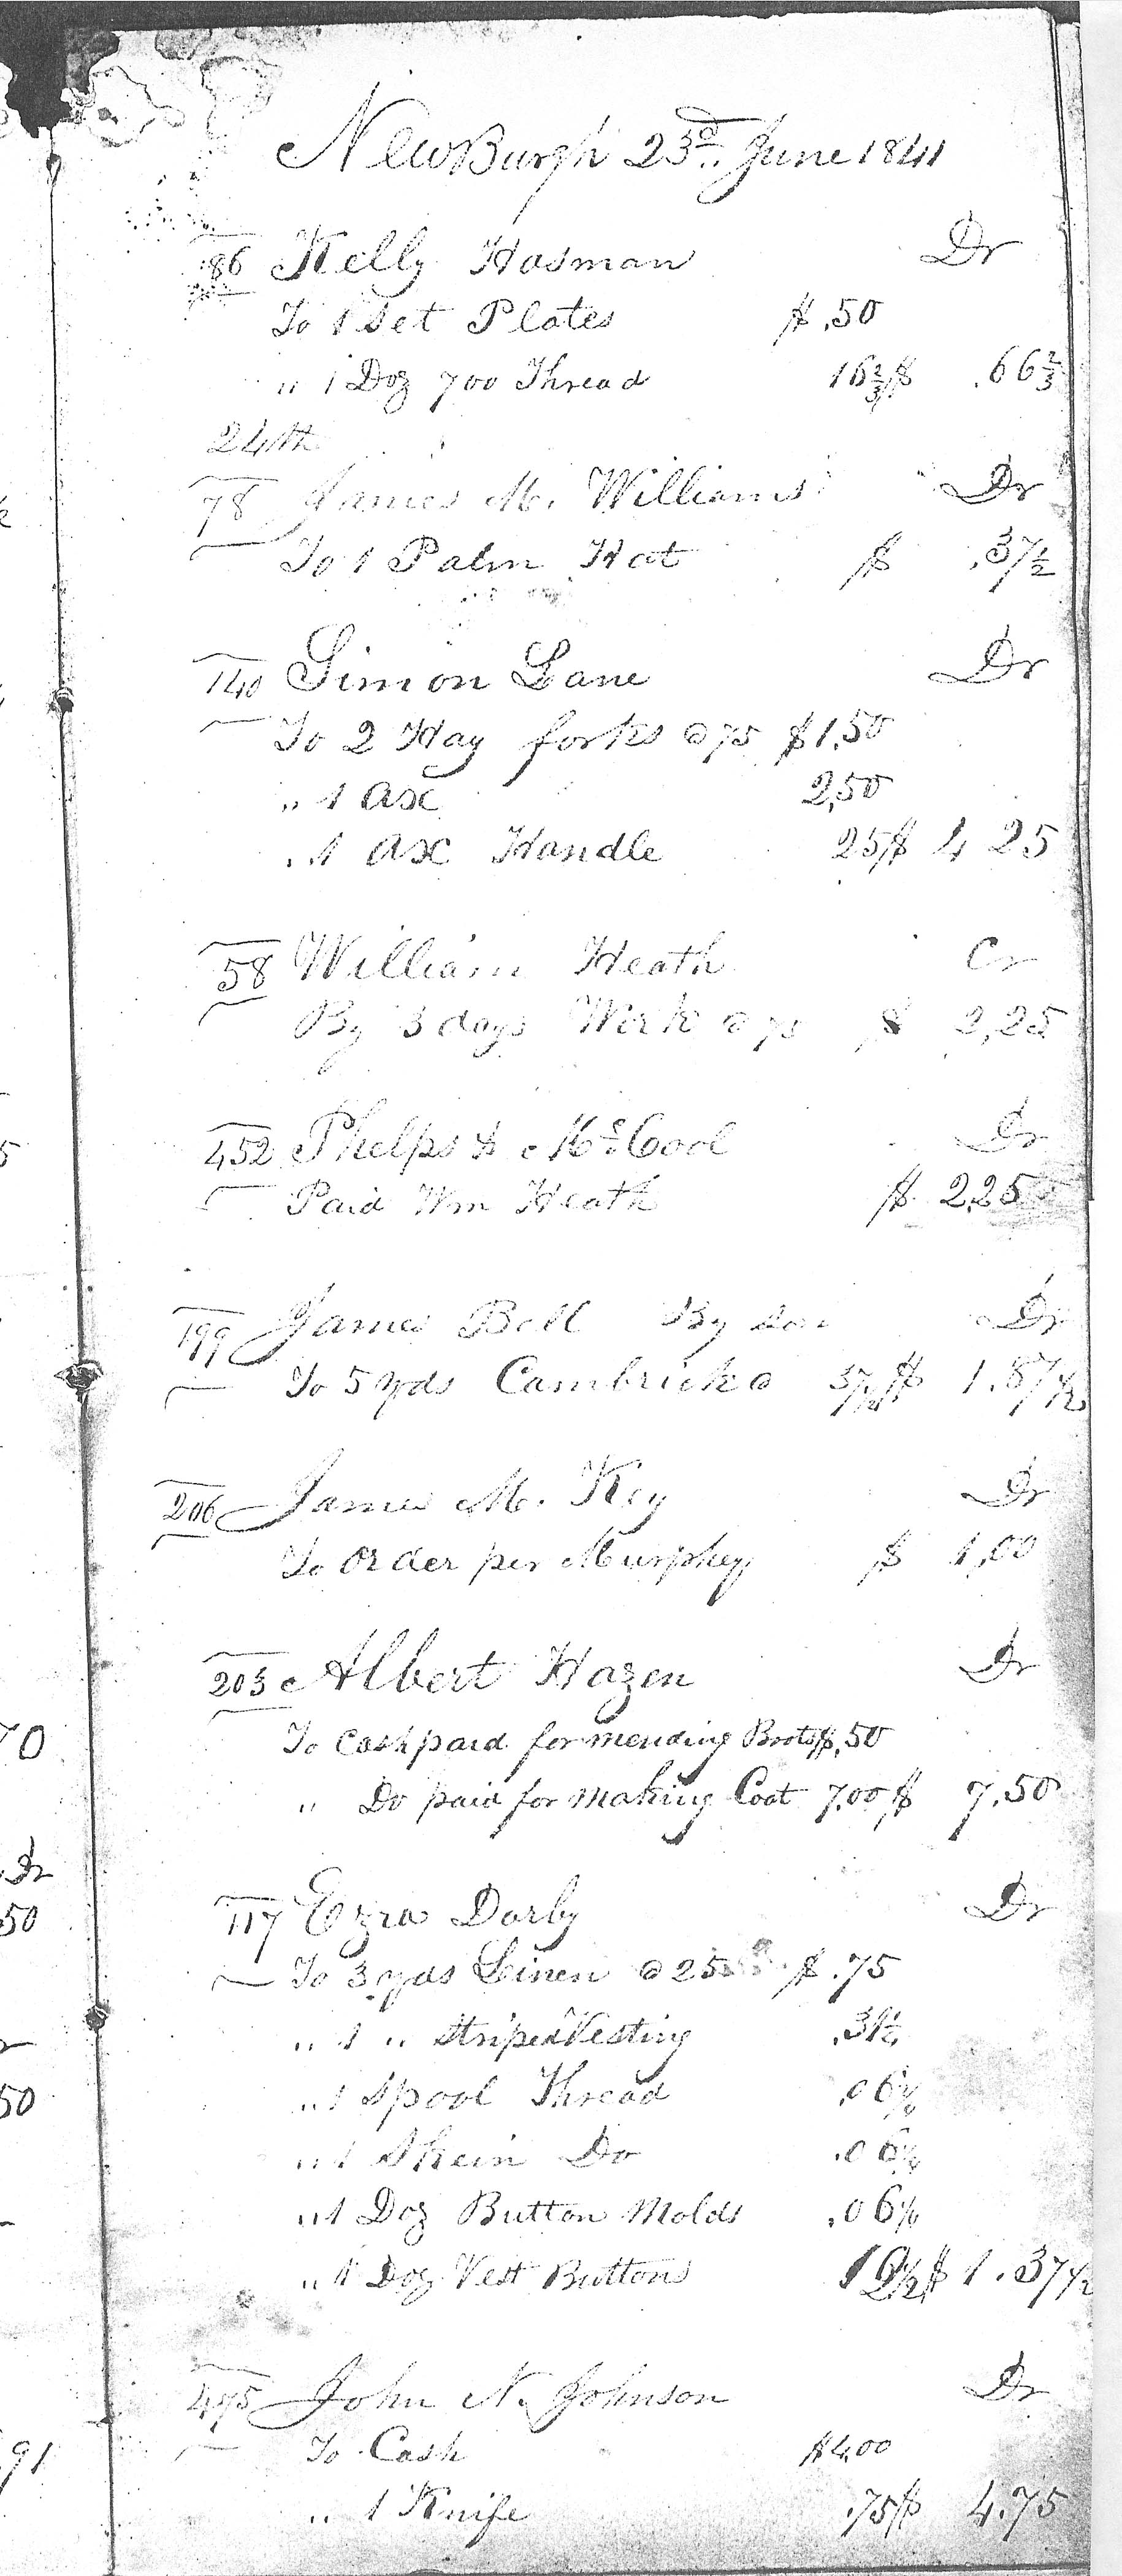 NewBurgh 23d June 1841
186 Kelly Hosman Dr
To 1 Set Plates $ .50
" 1 Doz 700 Thread 16 2/3 $ .66 2/3
24th
78 James M. Williams Dr
To 1 Palm Hat $ .37 1/2
140 Simon Lane Dr
To 2 Hay forks @ 75 $1.50
" 1 ax 2,50
" 1 ax Handle 25 $ 4 25
58 William Heath Cr
By 3 days Work @ 75 $ 2,25
452 Phelps & McCool Dr
Paid Wm Heath $ 2,25
199 James Bell By Son Dr
To 5 yds Cambrick @ 37 1/2 $ 1.87 1/2
206 James M. Key Dr
To order per Murphey $ 1,00
203 Albert Hazen Dr
To Cash paid for mending Boots $.50
" Do paid for making Coat 7.00 $ 7.50
117 Ezra Darby Dr
To 3 yds Linen @ 25 $ .75
" 1 " Striped Vesting .31 1/4
" 1 Spool Thread .06 1/4
" 1 Skein Do .06 1/4
" 1 Doz Button Molds .06 1/4
" 1 Doz Vest Buttons 12 1/2 $ 1.37 1/2
475 John N. Johnson Dr
To Cash $4.00
" 1 Knife .75 $ 4.75
70
Dr
50
50
91